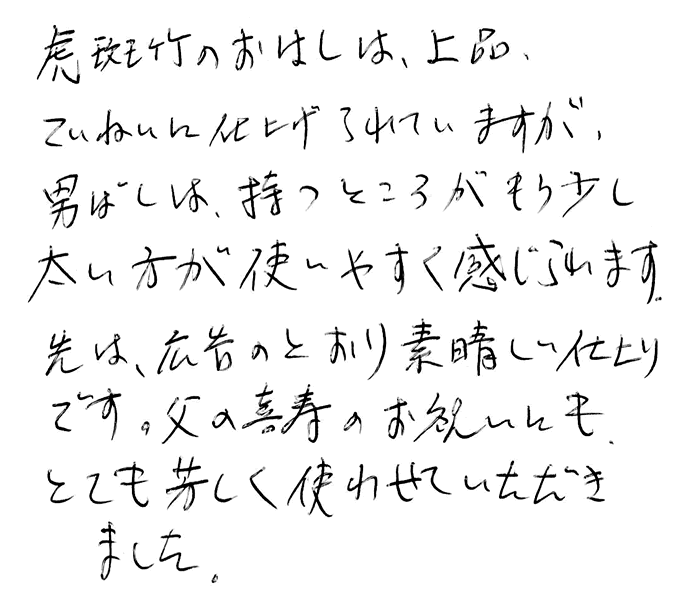 虎斑竹のおはしは、上品、
ていねいに仕上げられていますが、
男ばしは、持つところがもう少し
太い方が使いやすく感じられます。
先は、広告のとおり素晴しい仕上り
です。父の喜寿のお祝いにも、
とても芳しく使わせていただき
ました。